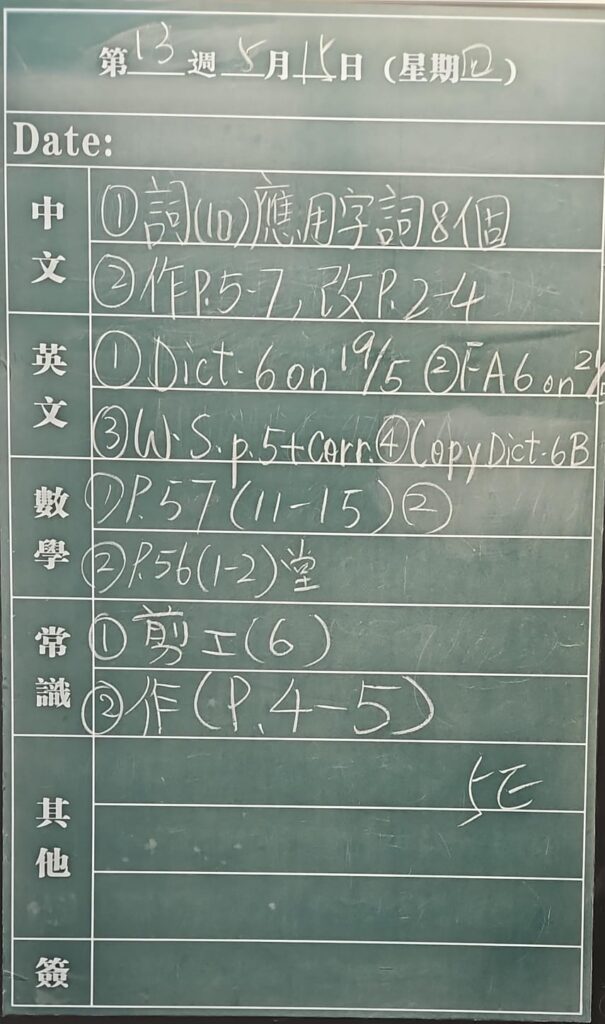 第13週5月15日(星期四)
Date:
中文
①詞(10)應用字詞8個
②作P.5-7,改P.2-4
英文
①Dict.6 on 19/5 ②FA6 on
③W.S.p.5+Corr.④Copy Dict.6B
數學
①P.57(11-15)②
②P.56(1-2)堂
常識
①剪工(6)
②作(P.4-5)
其他
5E
簽